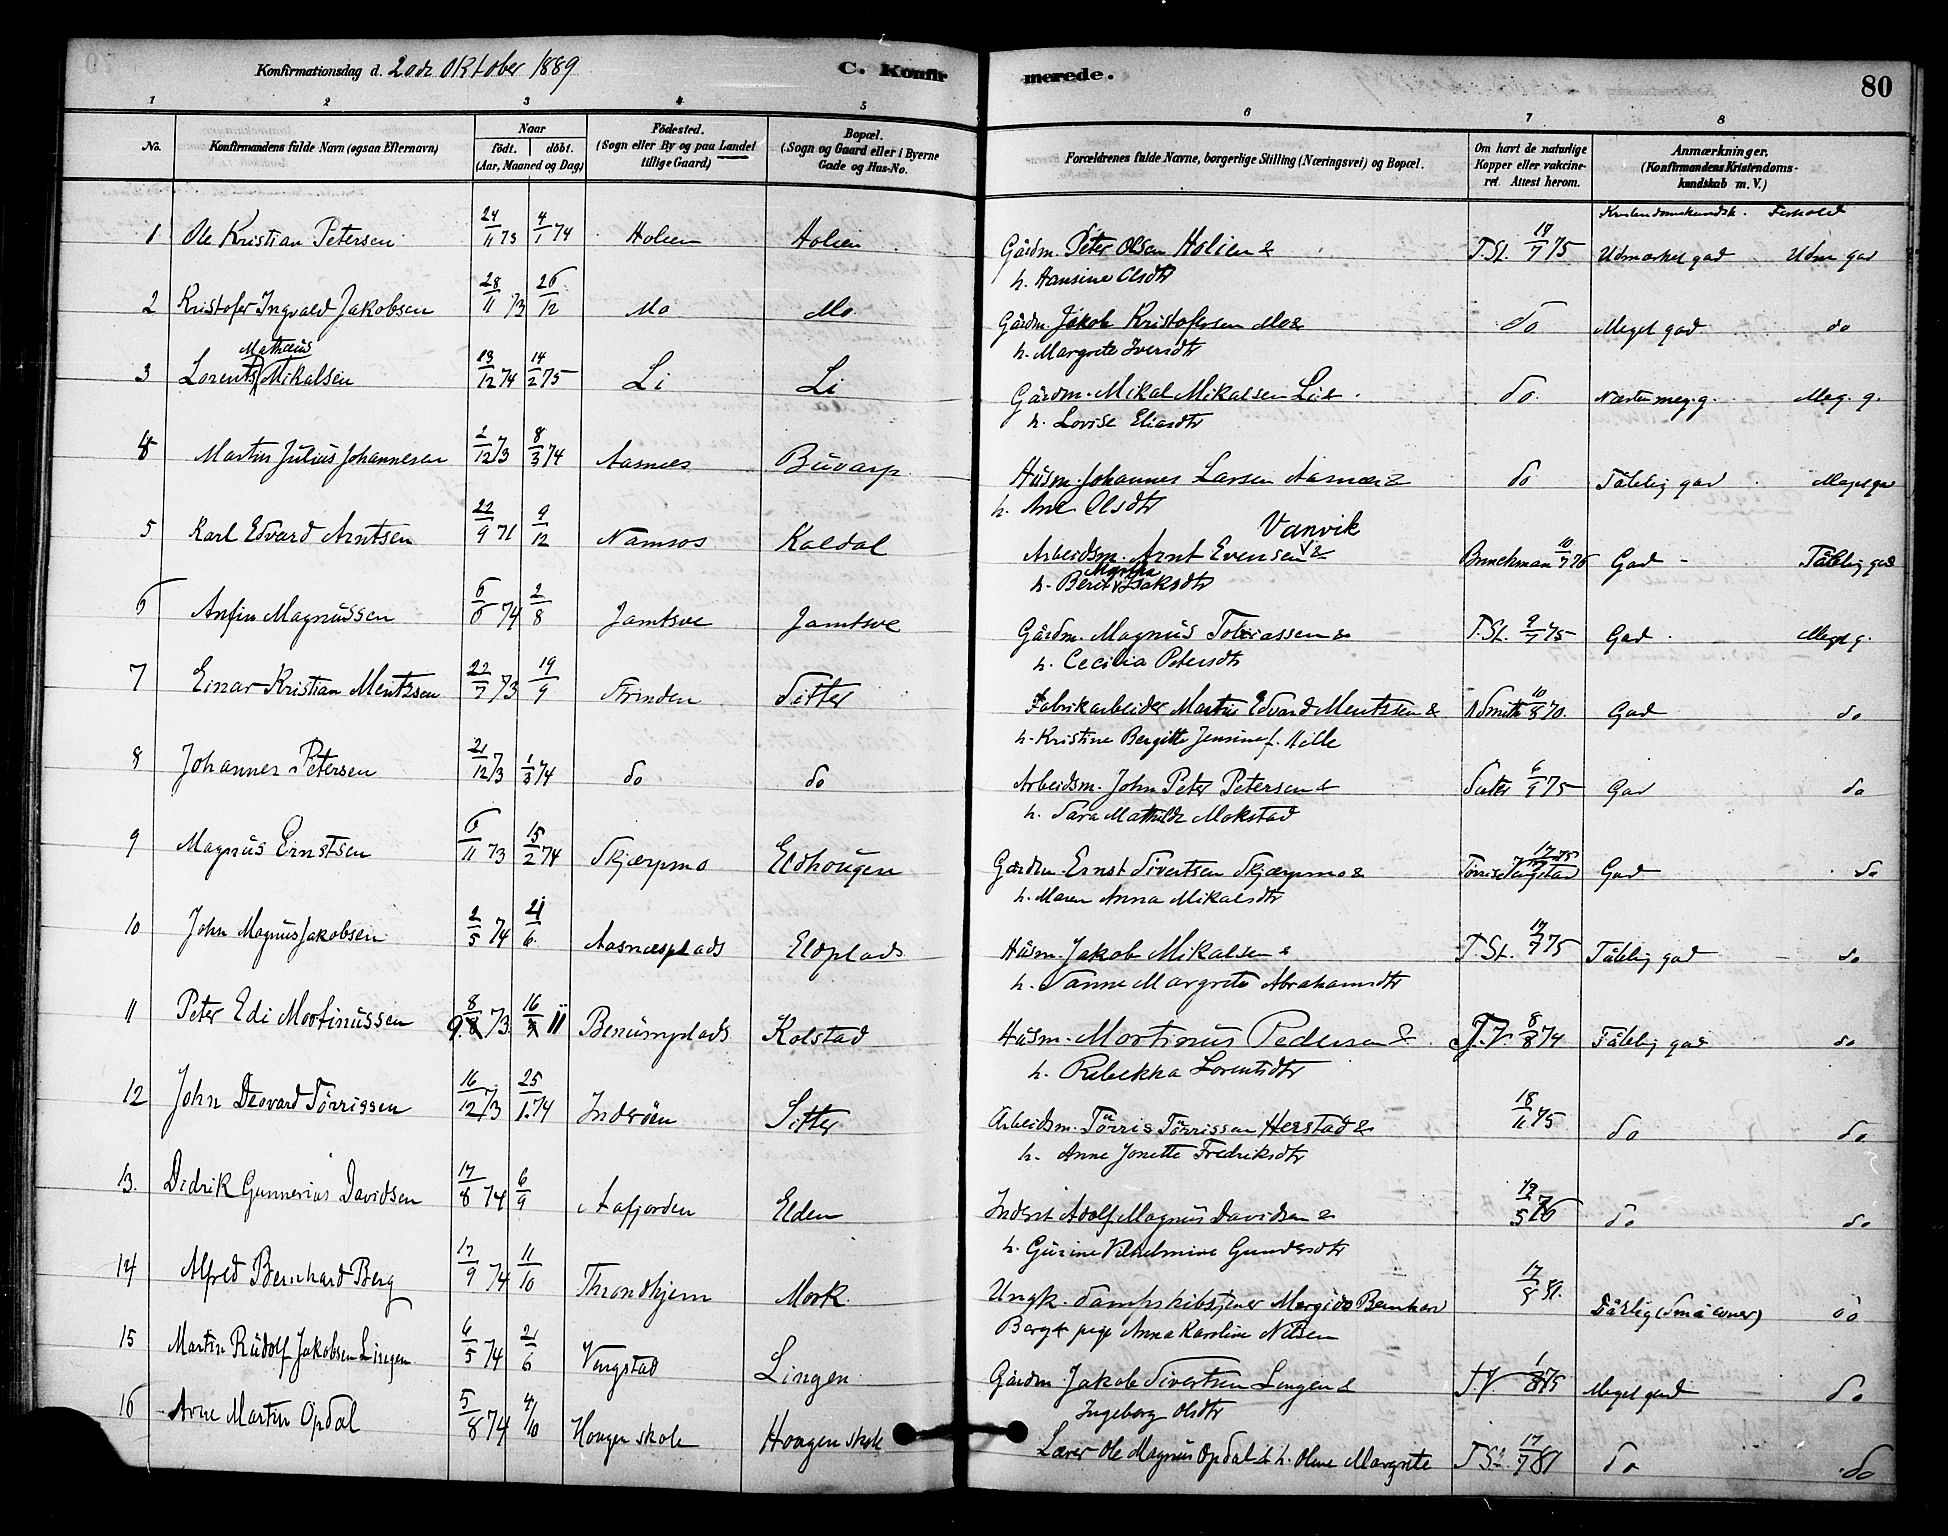 Konfirmationsdag d. 20de Oktober 1889
C. Konfirmerede.
80
1 2 3 4 5 6 7 8
No. Konfirmandens fulde Navn (ogsaa Efternavn) Naar født. døbt. (Aar, Maaned og Dag) Fødested. (Sogn eller By og paa Landet tillige Gaard) Bopæl. (Sogn og Gaard eller i Byerne Gade og Hus-No. Forældrenes fulde Navne, borgerlige Stilling (Næringsvei) og Bopæl. Om havt de naturlige Kopper eller vakcineret. Attest herom. Anmærkninger. (Konfirmandens Kristendomskundskab m. V.)
Kristendomskundsk. Forhold
1 Ole Kristian Petersen 24/11 73 4/1 74 Holien Holien Gårdm. Peter Olsen Holien & T.St. 17/7 75 Udmærket god Udm god
h. Hansine Olsdtr
2 Kristofer Ingvald Jakobsen 28/11 73 26/12 Mo Mo Gårdm. Jakob Kristofersen Mo & do Meget god do
h. Margrete Iversdtr
3 Lorents Mathæus Mikalsen 13/12 74 14/2 75 Li Li Gårdm. Mikal Mikalsen Li & do Næsten meg. g. Meg. g.
h. Lovise Eliasdtr
4 Martin Julius Johannesen 2/12 73 8/3 74 Aasnæs Buvarp Husm. Johannes Larsen Aasnæs & do Tålelig god Meget god
h. Ane Olsdtr
5 Karl Edvard Arntsen 22/9 71 9/12 Namsos Kaldal Arbeidsm. Arnt Evensen Vanvik & Brinchman 10/7 76 God Tålelig god
h. Berit Martha Isaksdtr
6 Anfin Magnussen 6/6 74 2/8 Jamtsve Jamtsve Gårdm. Magnus Tobiassen & T.St. 9/7 75 God Meget g.
h. Cecilia Petersdtr
7 Einar Kristian Mentzsen 22/7 73 19/9 Strinden Sitter Fabrikarbeider Martin Edvard Mentzsen & Smith 10/8 70. God do
h. Kristine Bergitte Jensine f. Hille
8 Johannes Petersen 21/12 73 1/3 74 do do Arbeidsm. John Peter Petersen & Sæter 6/9 75 God do
h. Sara Mathilde Mokstad
9 Magnus Ernstsen 6/11 73 15/2 74 Skjærpmo Eldhougen Gårdm. Ernst Sivertsen Skjærpmo & God do
h. Maren Anna Mikalsdtr
10 John Magnus Jakobsen 2/5 74 21/6. Aasnæsplads Eldplads Husm. Jakob Mikalsen & T.St. 17/7 75 Tålelig god do
h. Sanne Margrete Abrahamsdtr
11 Peter Edi Mortinussen 8/9. 73 16/11 Benumplads Kolstad Husm. Mortinus Pedersen & T.V. 8/8 74 Tålelig god do
h. Rebekka Lorentsdtr
12 John Deovard Tørrissen 16/12 73 25/1. 74 Inderøen Sitter Arbeidsm. Tørris Tørrissen Herstad & 18/11 75 do do
h. Anne Jonette Fredriksdtr
13. Didrik Gunnerius Davidsen 17/8 74 6/9 Aafjorden Elden Inderst Adolf Magnus Davidsen & 12/5 76 do do
h. Gurine Vilhelmine Gundersdtr
14 Alfred Bernhard Berg 17/9 74 11/10 Throndhjem Mork Ungk. Dampskibstjener Bernhard 17/9 81. Dårlig (Små evner) do
Berg & pige Anna Karoline Nilsen
15 Martin Rudolf Jakobsen Lingen 6/5 74 21/6 Vengstad Lingen Gårdm. Jakob Sivertsen Lingen & T.V. 1/8 75 Meget god do
Ingeborg Olsdtr
16 Arne Martin Opdal 5/8 74 4/10 Hougen skole Hougen skole Lærer Ole Magnus Opdal & h. Oline Margrete T St. 17/7 81 do do